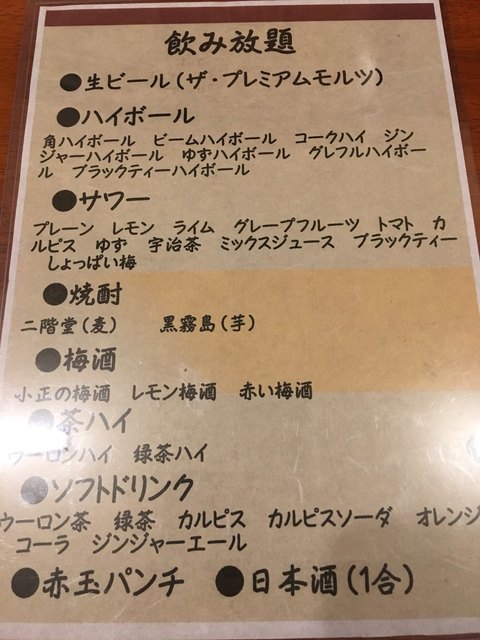 飲み放題
●生ビール(ザ・プレミアムモルツ)
●ハイボール
角ハイボール ビームハイボール コークハイ ジン
ジャーハイボール ゆずハイボール グレフルハイボー
ル ブラックティーハイボール
●サワー
プレーン レモン ライム グレープフルーツ トマト カ
ルピス ゆず 宇治茶 ミックスジュース ブラックティー
しょっぱい梅
●焼酎
二階堂(麦) 黒霧島(芋)
●梅酒
小正の梅酒 レモン梅酒 赤い梅酒
●茶ハイ
ウーロンハイ 緑茶ハイ
●ソフトドリンク
ウーロン茶 緑茶 カルピス カルピスソーダ オレンジ
コーラ ジンジャーエール
●赤玉パンチ ●日本酒(1合)